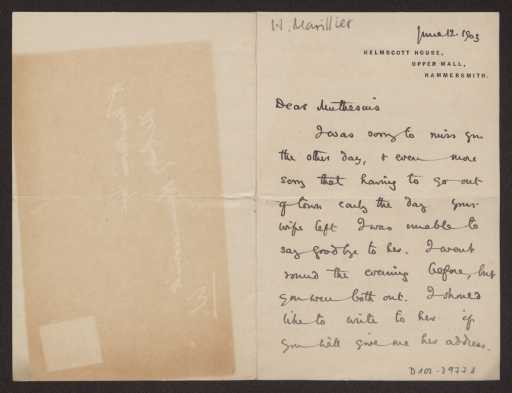 H. Marillier
June 12. 1903
KELMSCOTT HOUSE,
UPPER MALL,
HAMMERSMITH.
Dear Muthesius
I was sorry to miss you
the other day, & even more
sorry that having to go out
of town early the day your
wife left I was unable to
say goodbye to her. I went
round the evening before, but
you were both out. I should
like to write to her if
you will give me her address.